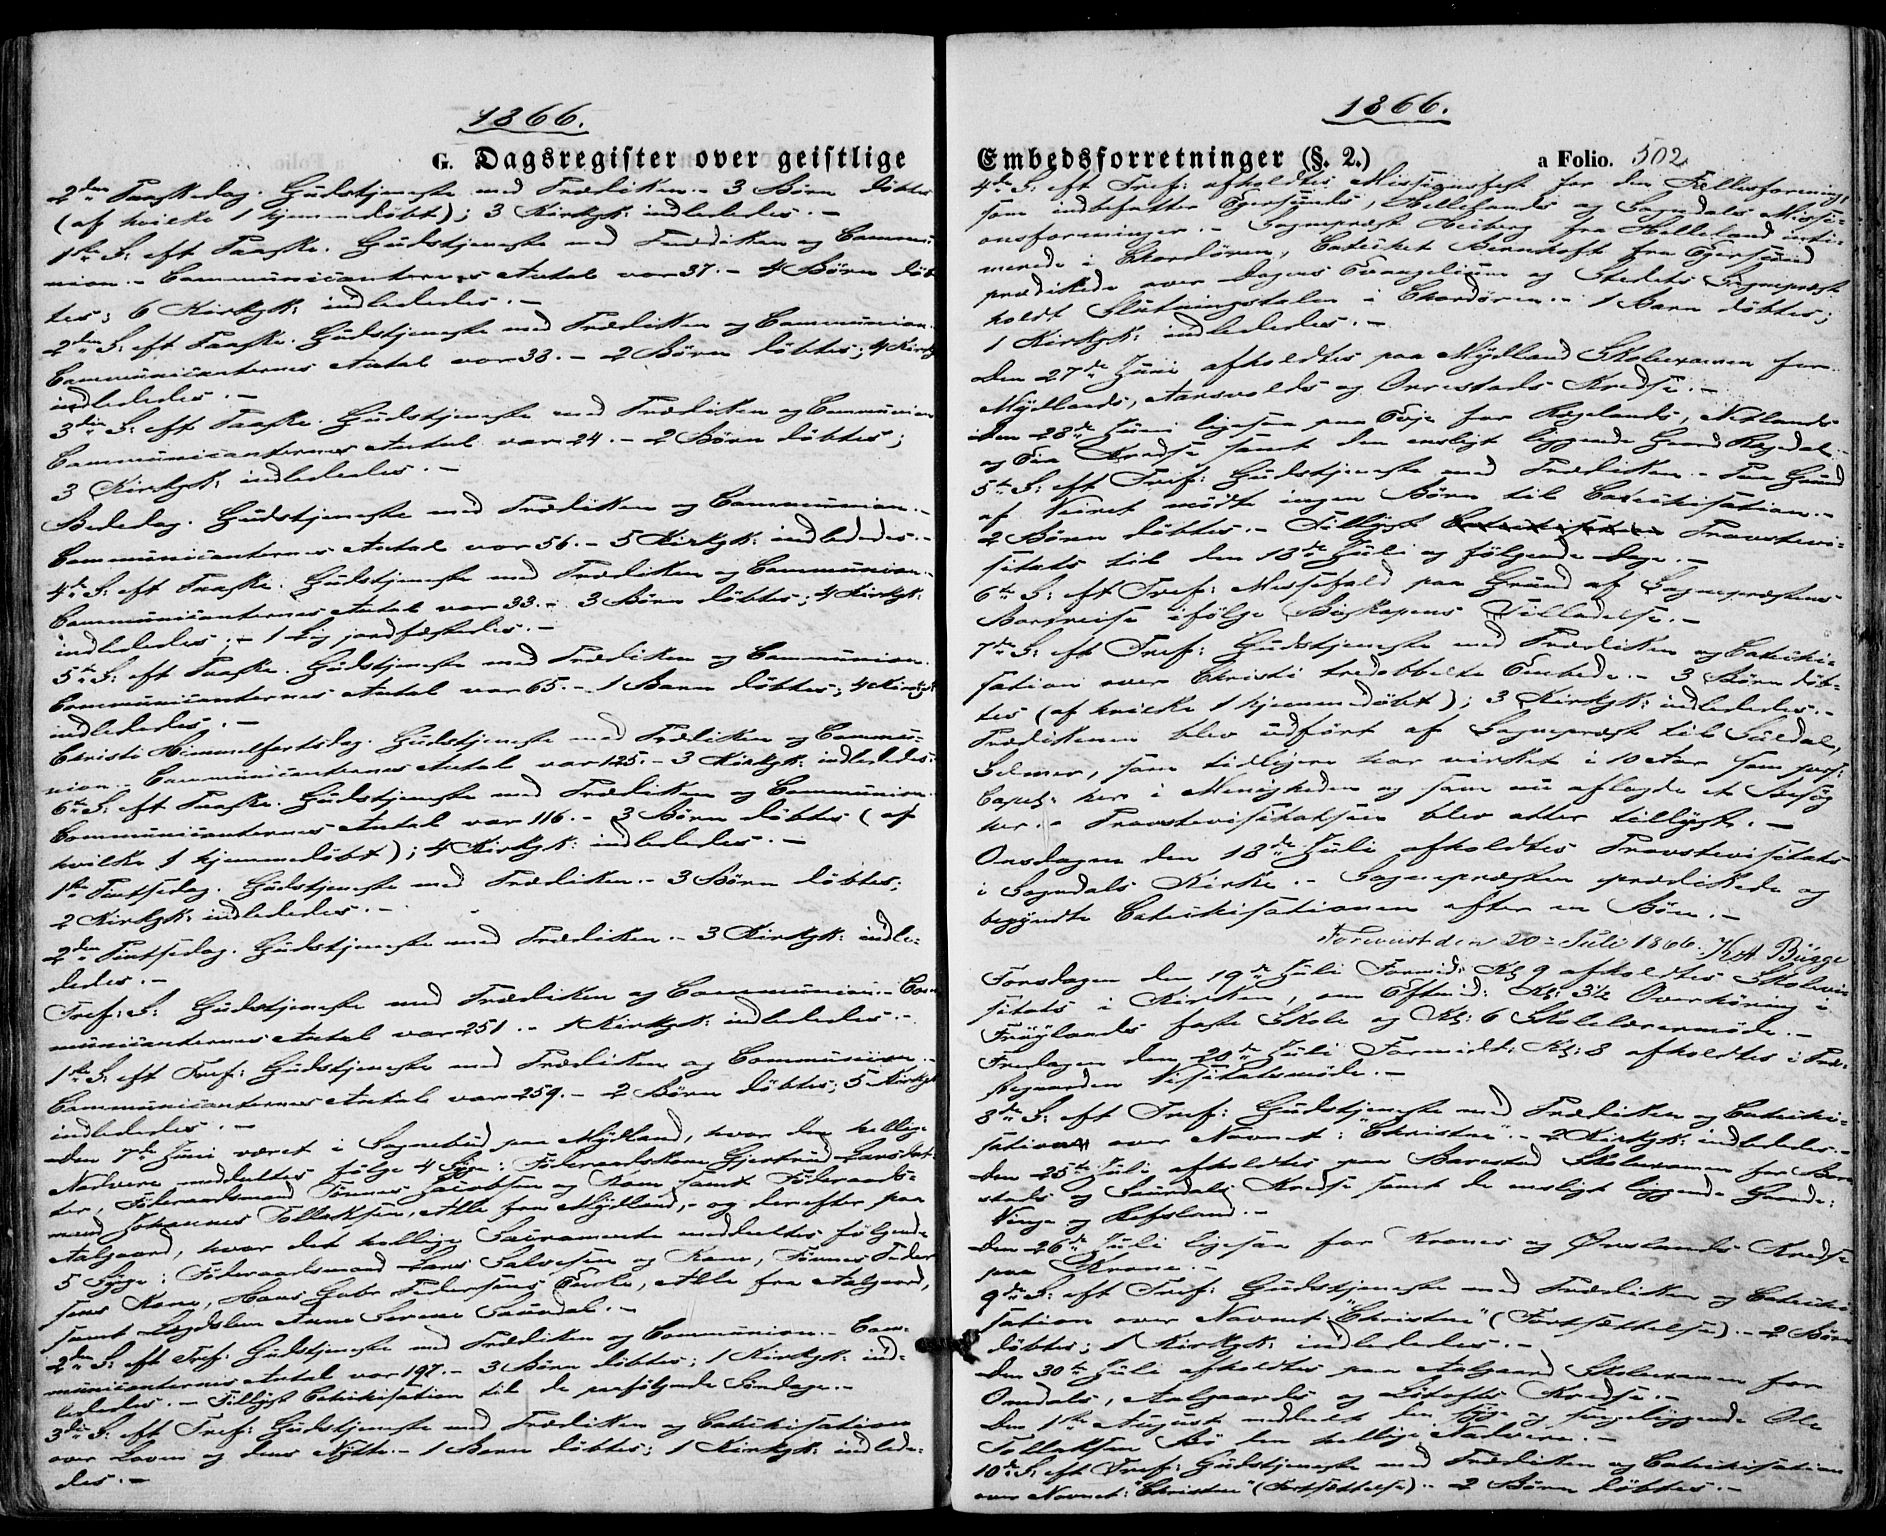 1866.
G. Dagsregister over geistlige
2den Paaskedag. Gudstjeneste med Prædiken. - 3 Börn döbtes
(af hvilke 1 hjemmedöbt); 3 Kirkgk: indlededes. -
1ste S. eft Paaske. Gudstjeneste med Prædiken og Commu-
nion. - Communicanternes Antal var 37. - 4 Börn döb-
tes; 6 Kirkgk: indlededes. -
2den S: eft Paaske. Gudstjeneste med Prædiken og Communion.
Communicanternes Antal var 33. - 2 Börn döbtes; 4 Kirkgk
indlededes. -
3die S: eft Paaske. Gudstjeneste med Prædiken og Communion
Communicanternes Antal var 24. - 2 Börn döbtes;
3 Kirkgk: indlededes. -
Bededag. Gudstjeneste med Prædiken og Communion. -
Communicanternes Antal var 56. - 5 Kirkgk: indlededes. -
4de S: eft Paaske. Gudstjeneste med Prædiken og Communion. -
Communicanternes Antal var 33. - 3 Börn döbtes; 4 Kirkgk:
indlededes; - 1 Lig jordfæstedes. -
5te S: eft Paaske. Gudstjeneste med Prædiken og Communion.
Communicanternes Antal var 65. - 1 Barn döbtes; 4 Kirkgk:
indlededes. -
Christi Himmelfartsdag. Gudstjeneste med Prædiken og Commu-
nion. Communicanternes Antal var 125. - 3 Kirkgk: indlededes.
6te S: eft Paaske. Gudstjeneste med Prædiken og Communion.
Communicanternes Antal var 116. - 3 Börn döbtes (af
hvilke 1 hjemmedöbt); 4 Kirkgk: indlededes. -
1ste Pintsedag. Gudstjeneste med Prædiken. - 3 Börn döbtes;
2 Kirkgk: indlededes. -
2den Pintsedag. Gudstjeneste med Prædiken. - 3 Kirkgk: indle-
dedes. -
Tref: S: Gudstjeneste med Prædiken og Communion. - Com-
municanternes Antal var 251. - 1 Kirkgk: indlededes. -
1ste S: eft Tref: Gudstjeneste med Prædiken og Communion. -
Communicanternes Antal var 259. - 2 Börn döbtes; 5 Kirkgk
indlededes. -
Den 7de Juni været i Sognebud paa Mydland, hvor den hellige
Nadvere meddeltes fölge 4 Syge: Föderaadskone Gjertrud Larsdat-
ter, Föderaadsmand Tönnes Jacobsen og Kone samt Föderaads-
mand Johannes Tollaksen, Alle fra Mydland, - og derefter paa
Aalgaard, hvor det hellige Sacramente meddeltes følgende
5 Syge: Föderaadsmand Lars Salvesen og Kone, Tönnes Peder
sens Kone, Hans Gabr. Pedersens Enke, Alle fra Aalgaard,
samt Lægdslem Anne Serene Saurdal. -
2den S: eft Tref: Gudstjeneste med Prædiken og Communion. - Com-
municanternes Antal var 197. - 3 Börn döbtes; 1 Kirkgk: ind-
lededes. - Tillyst Catechisation til de paafölgende Söndage. -
3die S: eft Tref: Gudstjeneste med Prædiken og Catechisation
over Loven og dens Nytte. - 1 Barn döbtes; 1 Kirkgk: indlede-
des. -
1866.
Embedsforretninger (§. 2.) a Folio. 502
4de S: eft Tref: afholdtes Missionsfest for den Fællesforening,
som indbefatter Egersunds, Hellelands og Sogndals Missi-
onsforeninger. - Sognepræst Heiberg fra Helleland inti-
merede i Chordören, Catechet fra Egersund
prædikede over Dagens Evangelium og Stedets Sognepræst
holdt Slutningstalen i Chordören. - 1 Barn döbtes;
1 Kirkgk: indlededes. -
Den 27de Juni afholdtes paa Mydland Skolexamen for
Mydlands, Aarsvolds og Orrestads Kredse. -
Den 28de Juni ligesaa paa Evje for Rægelands, Netlands
og Kredse samt den ensligt liggende Gaard Rægedal. -
5te S: eft Tref: Gudstjeneste med Prædiken. - Paa Grund
af Veiret mödte ingen Börn til Catechisation. -
2 Börn döbtes. - Tillyst Provstevi-
sitats til den 18de Juli og fölgende Dage. -
6te S: eft Tref: Messefald paa Grund af Sognepræstens
Bortreise ifölge Biskopens Tilladelse. -
7de S: eft Tref: Gudstjeneste med Prædiken og Catechi-
sation over Christi tredobbelte Embede. - 3 Börn döb-
tes (af hvilke 1 hjemmedöbt); 3 Kirkgk: indlededes. -
Prædikenen blev udfört af Sognepræst til Suldal,
Selmer, som tidligere har virket i 10 Aar som pers:
Capel: her i Menigheden og som nu aflagde et Besög
her. - Provstevisitatsen blev atter tillyst. -
Onsdagen den 18de Juli afholdtes Provstevisitats
i Sogndals Kirke. - Sognepræsten prædikede og
begyndte Catechisationen efter en Bön. -
Forevist den 20de Juli 1866. Bugge
Torsdagen den 19de Juli Formid: Kl 9 afholdtes Skolevi-
sitats i Kirken, om Eftmid: Kl: 3½ Overhöring i
Fröylands faste Skole og Kl: 6 Skolelærermöde. -
Fredagen den 20de Juli Formidt: Kl: 8 afholdtes i Præ-
stegaarden Visitatsmöde. -
8de S: eft Tref: Gudstjeneste med Prædiken og Catechi-
sation over Navnet: "Christne". - 2 Kirkgk: indlededes. -
Den 25te Juli afholdtes paa Barestad Skolexamen for Bare
stads og Saurdals Kredse samt de ensligt liggende Gaarde:
Vinje og Refsland. -
Den 26de Juli ligesaa for Krones og Ørslands Kredse
paa Krone. -
9de S: eft Tref: Gudstjeneste med Prædiken og Catechi-
sation over Navnet "Christne" (Fortsættelse). - 2 Börn
döbtes; 1 Kirkgk: indlededes. -
Den 30te Juli afholdtes paa Aalgaard Skolexamen for
Omdals, Aalgaards og Kredse. -
Den 1ste August meddelt den syge og sengeliggende Ole
Tollaksen Bö den hellige Nadvere. -
10de S: eft Tref: Gudstjeneste med Prædiken og Catechisation
over Navnet: "Christne" (Fortsættelse). - 2 Börn döbtes. -